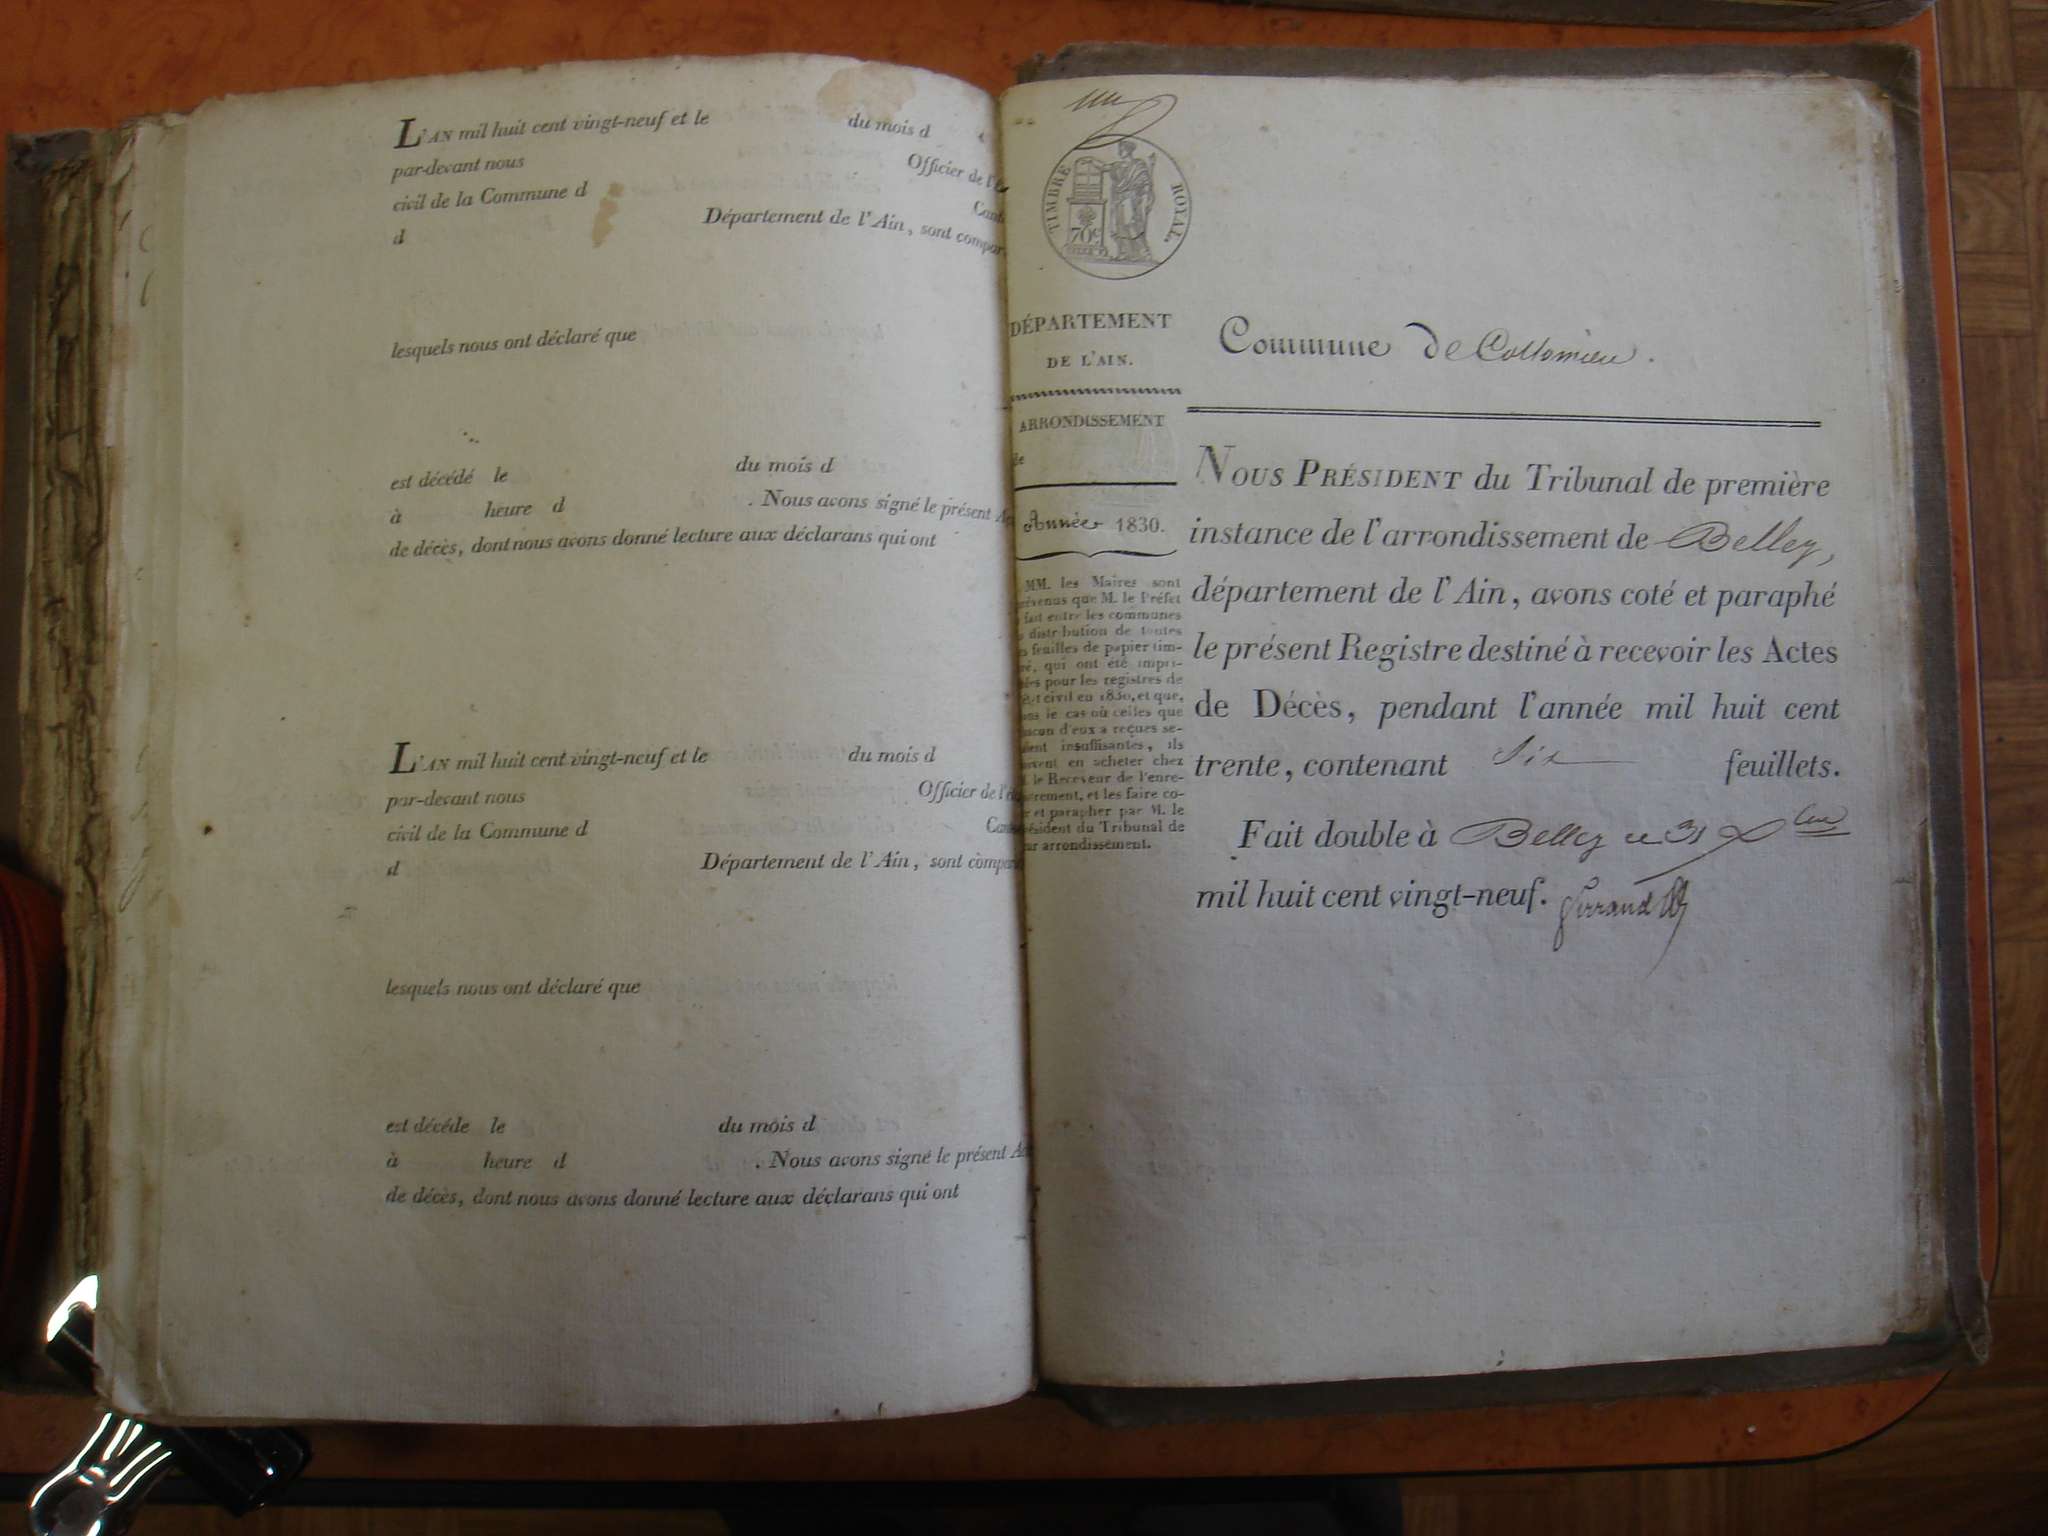 L'AN mil huit cent vingt-neuf et le du mois d
par-devant nous Officier de l'
civil de la Commune d
d Département de l'Ain, sont compar
lesquels nous ont déclaré que
est décédé le du mois d
à heure d . Nous avons signé le présent
de décès, dont nous avons donné lecture aux déclarans qui ont
L'AN mil huit cent vingt-neuf et le du mois d
par-devant nous Officier de l'
civil de la Commune d
d Département de l'Ain, sont compar
lesquels nous ont déclaré que
est décédé le du mois d
à heure d . Nous avons signé le présent
de décès, dont nous avons donné lecture aux déclarans qui ont
TIMBRE ROYAL.
70c
DÉPARTEMENT
DE L'AIN.
ARRONDISSEMENT
de
Année 1830.
MM. les Maires sont
prévenus que M. le Préfet
fait entre les communes
distribution de toutes
feuilles de papier tim-
ré, qui ont été impri-
ées pour les registres de
état civil en 1830, et que,
le cas où celles que
d'eux a reçues se-
insuffisantes, ils
en acheter chez
le Receveur de l'enre-
, et les faire co-
et parapher par M. le
ésident du Tribunal de
arrondissement.
Commune de Collomieu.
NOUS PRÉSIDENT du Tribunal de première
instance de l'arrondissement de Belley,
département de l'Ain, avons coté et paraphé
le présent Registre destiné à recevoir les Actes
de Décès, pendant l'année mil huit cent
trente, contenant Six feuillets.
Fait double à Belley ce 31 Xbre
mil huit cent vingt-neuf.